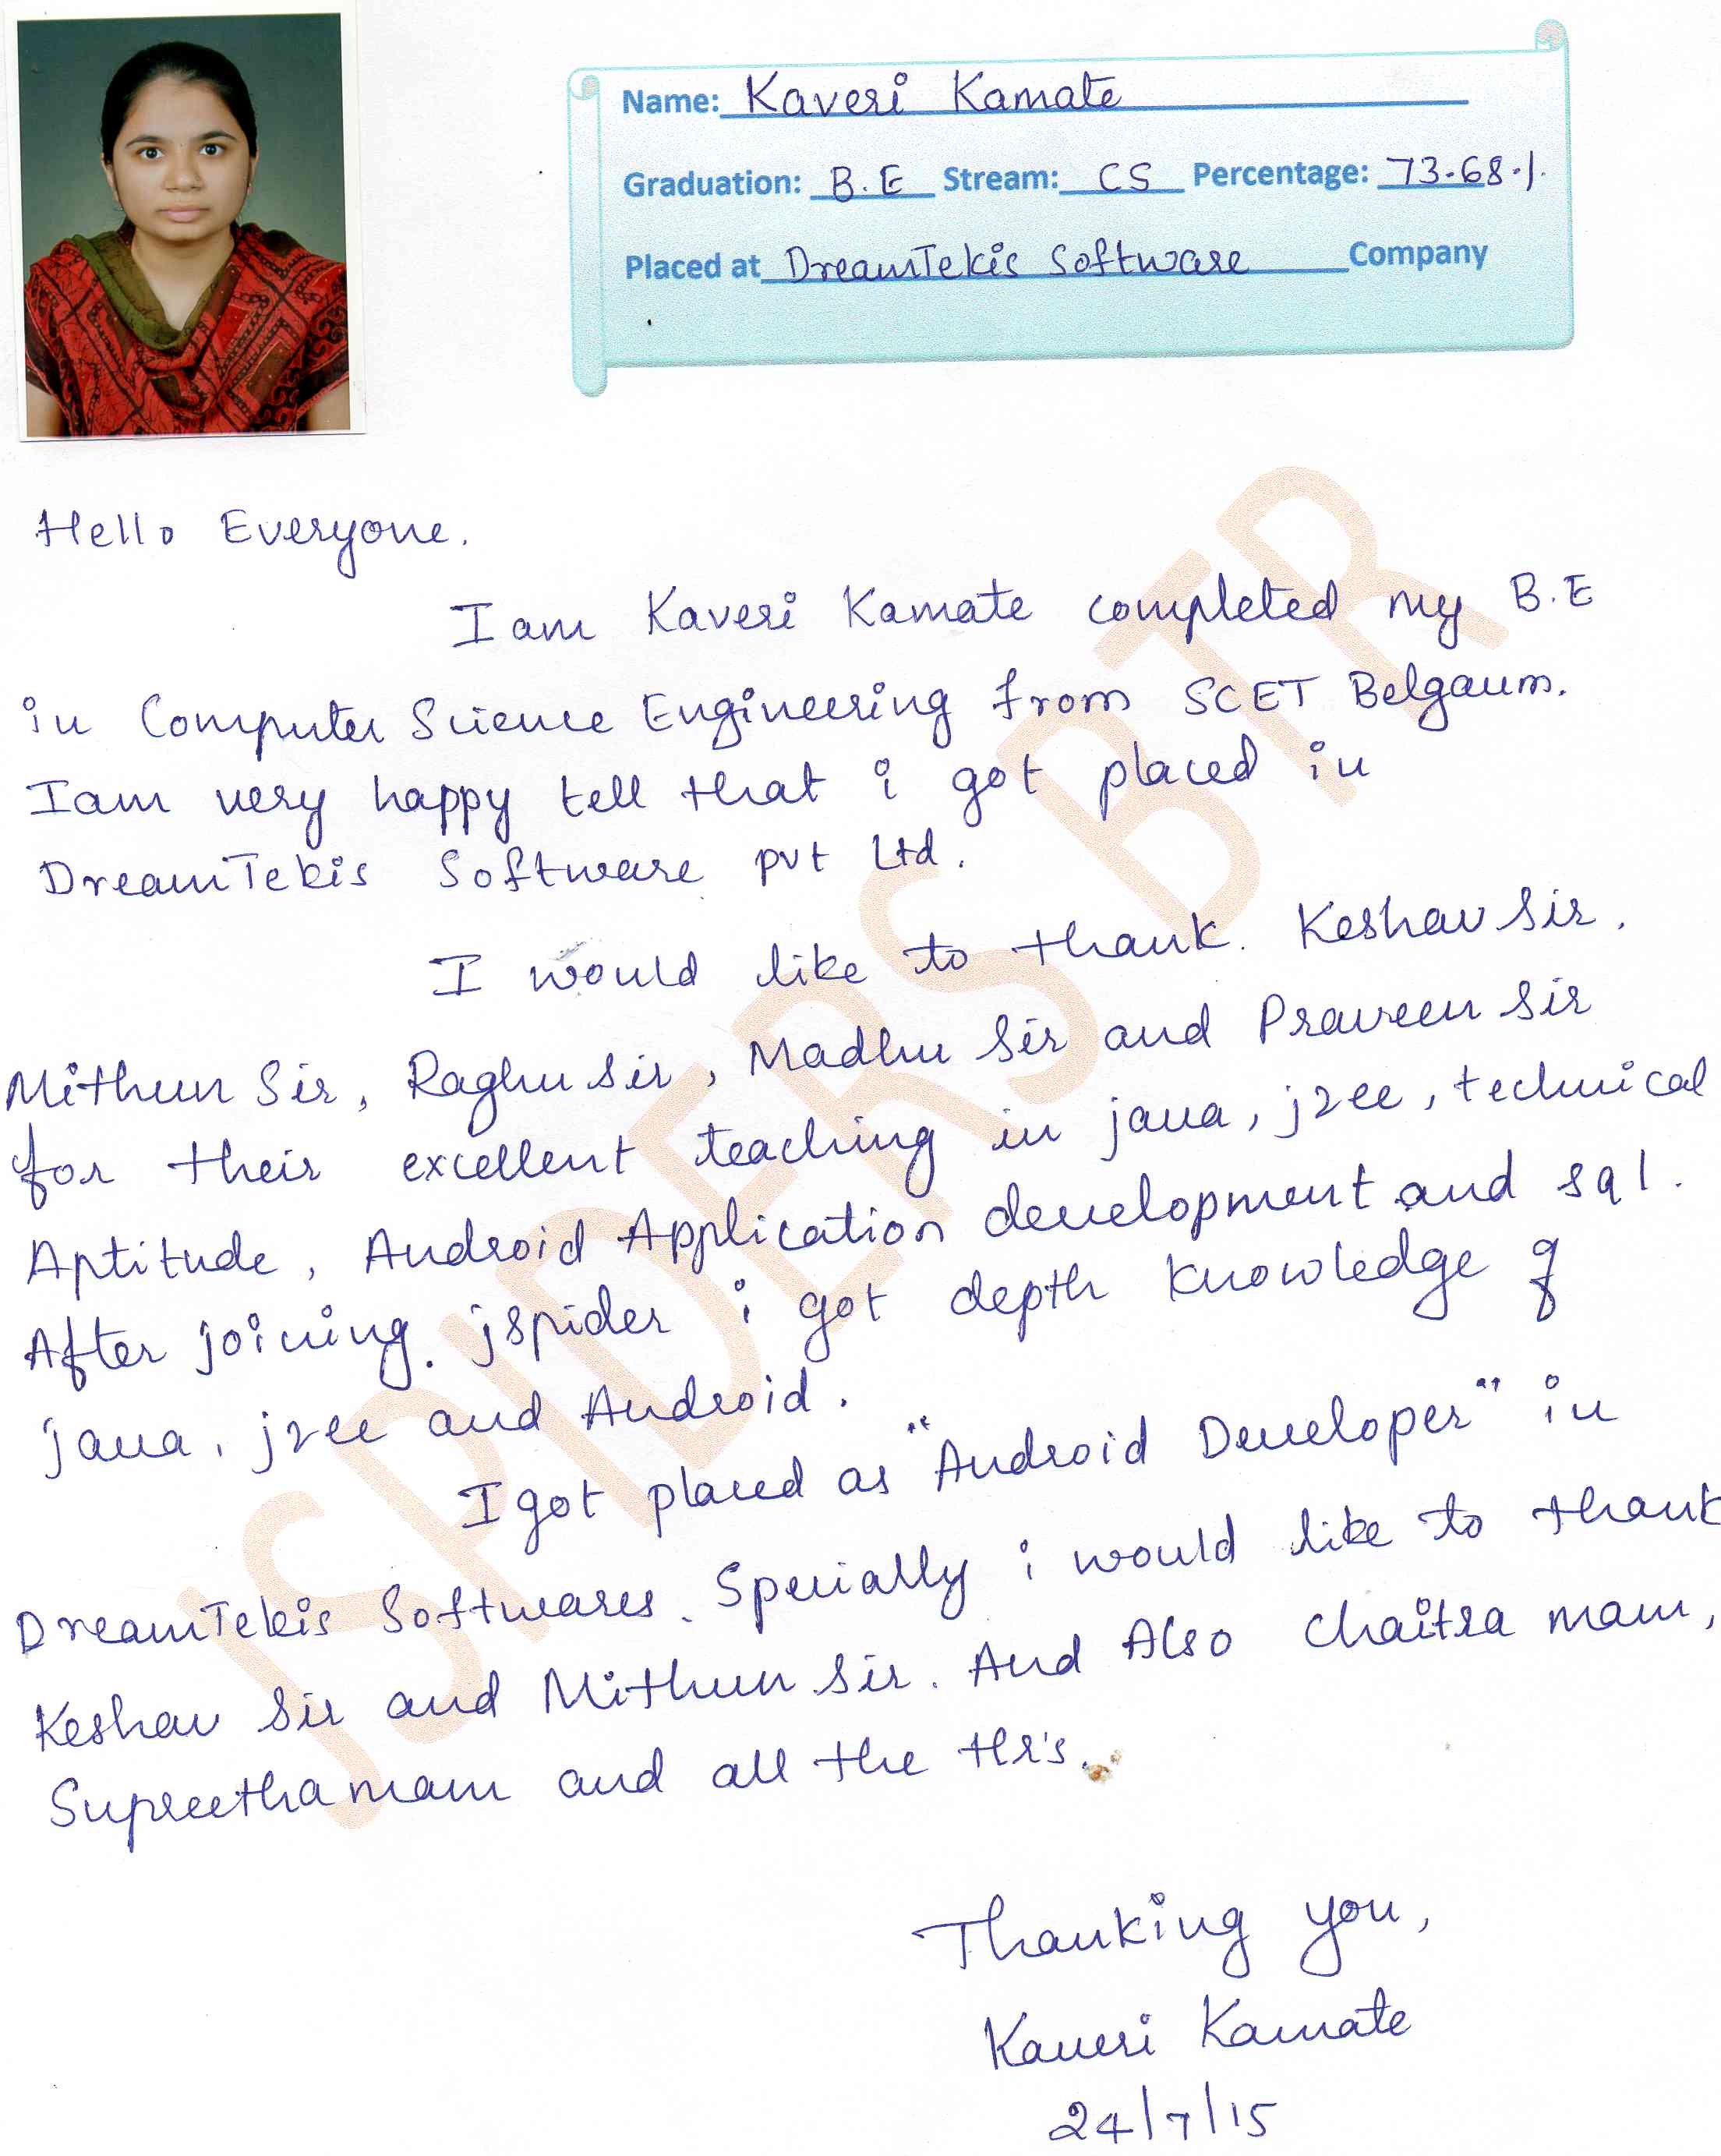 Name: Kaveri Kamate
Graduation: B.E Stream: CS Percentage: 73.68.1.
Placed at DreamTekis Software Company
Hello Everyone.
I am Kaveri Kamate completed my B.E
in Computer Science Engineering from SCET Belgaum.
I am very happy tell that i got placed in
DreamTekis Software pvt Ltd.
I would like to thank. Keshav Sir.
Mithun Sir, Raghu sir, Madhu Sir and Praveen Sir
for their excellent teaching in java, j2ee, technical
Aptitude, Android Application development and sql.
After joining. jspider i got depth knowledge of
java, j2ee and Android.
I got placed as "Android Developer" in
DreamTekis Softwares. Specially i would like to thank
Keshav Sir and Mithun Sir. And Also Chaitra mam,
Supreetha mam and all the Hr's.
Thanking you,
Kaveri Kamate
24/7/15
JSPIDERS BTR